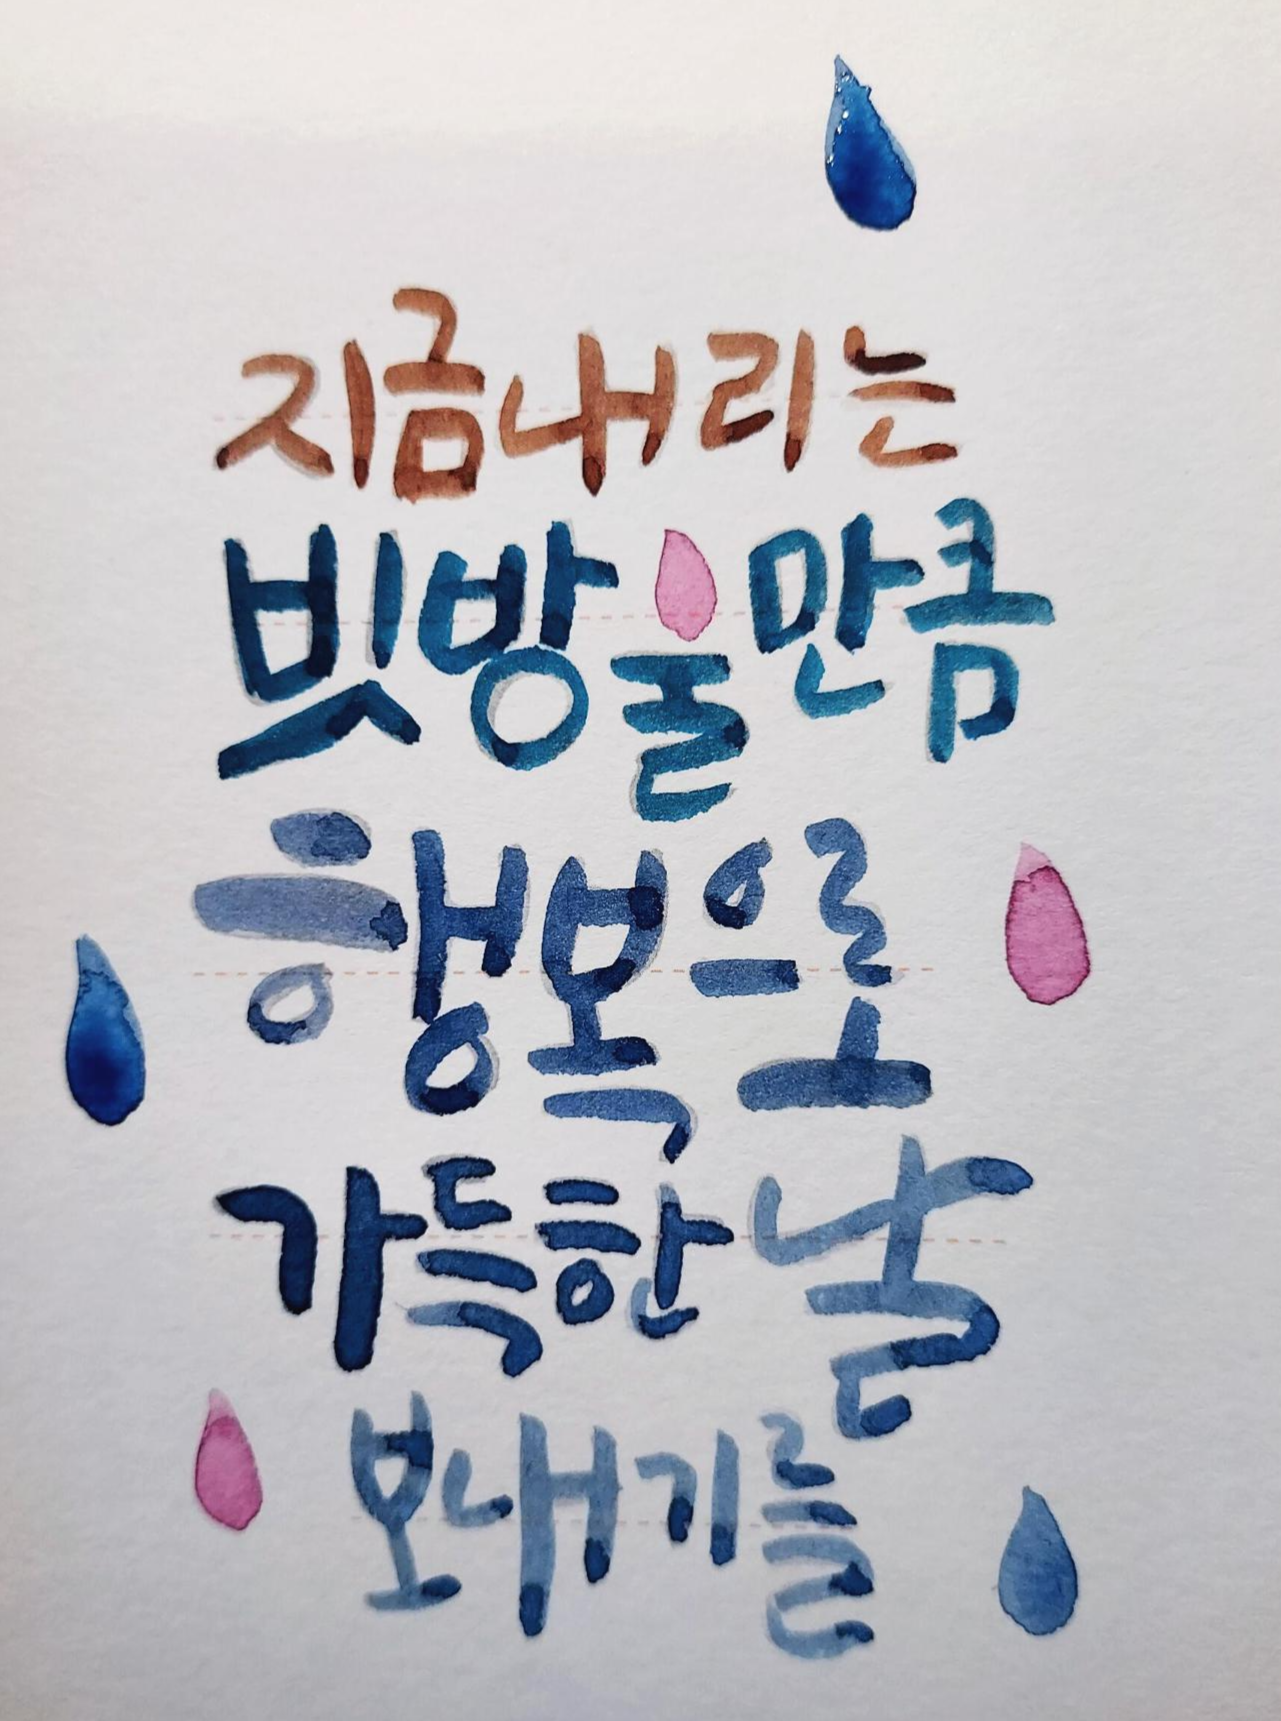 지금내리는
빗방울만큼
행복으로
가득한 날
보내기를